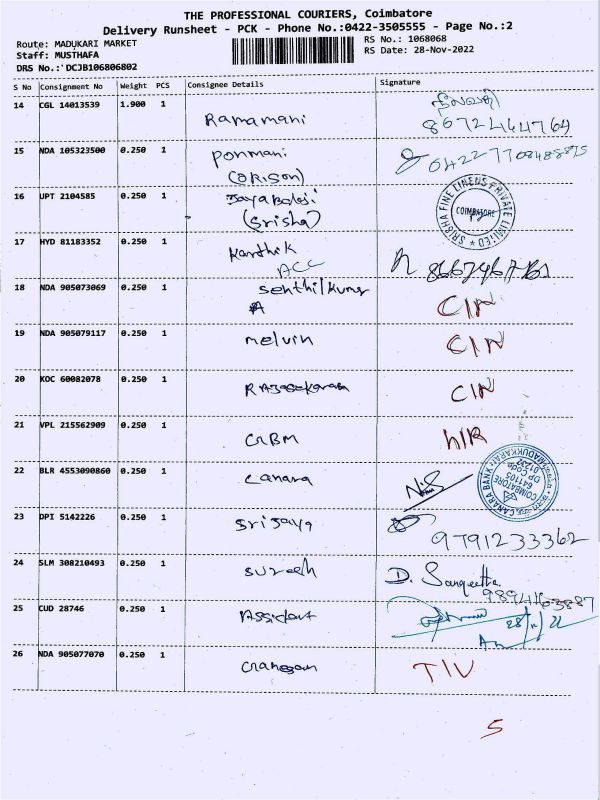 THE PROFESSIONAL COURIERS, Coimbatore
Delivery Runsheet - PCK - Phone No.:0422-3505555 - Page No.:2
Route: MADUKARI MARKET
RS No.: 1068068
Staff: MUSTHAFA
RS Date: 28-Nov-2022
DRS No.: DCJB106806802
S No Consignment No Weight PCS Consignee Details Signature
14 CGL 14013539 1.900 1 Ramamani
15 NDA 105323500 0.250 1 Ponmani
(ORISON)
16 UPT 2104585 0.250 1 Jayabalaji
(Srisha)
SRISHA FINE LINENS PRIVATE LIMITED
COIMBATORE
17 HYD 81183352 0.250 1 Karthik
ACC
18 NDA 905073069 0.250 1 Senthilkumar CIN
19 NDA 905079117 0.250 1 Melvin CIN
20 KOC 60082078 0.250 1 Rajasekaran CIN
21 VPL 215562909 0.250 1 CRBM
22 BLR 4553090860 0.250 1 Canara
CANARA BANK
COIMBATORE
641105
DP Code
23 DPI 5142226 0.250 1 Srijaya 9791233362
24 SLM 308210493 0.250 1 Suresh D. Sangeetha
25 CUD 28746 0.250 1 28/11/22
26 NDA 905077070 0.250 1 T/V
5